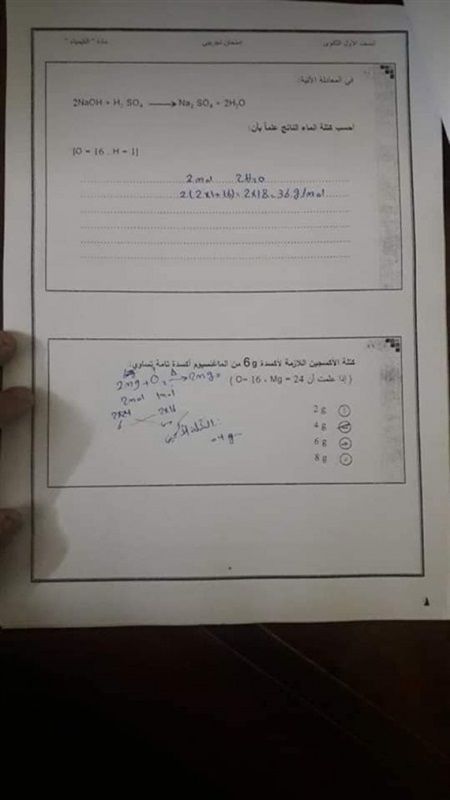 للصف الأول الثانوي امتحان تجريبي مادة " الكيمياء "
في المعادلة الآتية:
2NaOH + H₂ SO₄ ⟶ Na₂ SO₄ + 2H₂O
احسب كتلة الماء الناتج علماً بأن:
[O = 16 , H = 1]
2 mol 2H₂O
2(2x1+16) = 2x18 = 36 g/mol
كتلة الأكسجين اللازمة لأكسدة 6 g من الماغنسيوم أكسدة تامة تساوي:
( إذا علمت أن O= 16 , Mg = 24 )
2mg + O₂ ⟶ 2mgo
2mol 1mol
2x24 2x16
6
4 g
2 g
4 g
6 g
8 g
٨